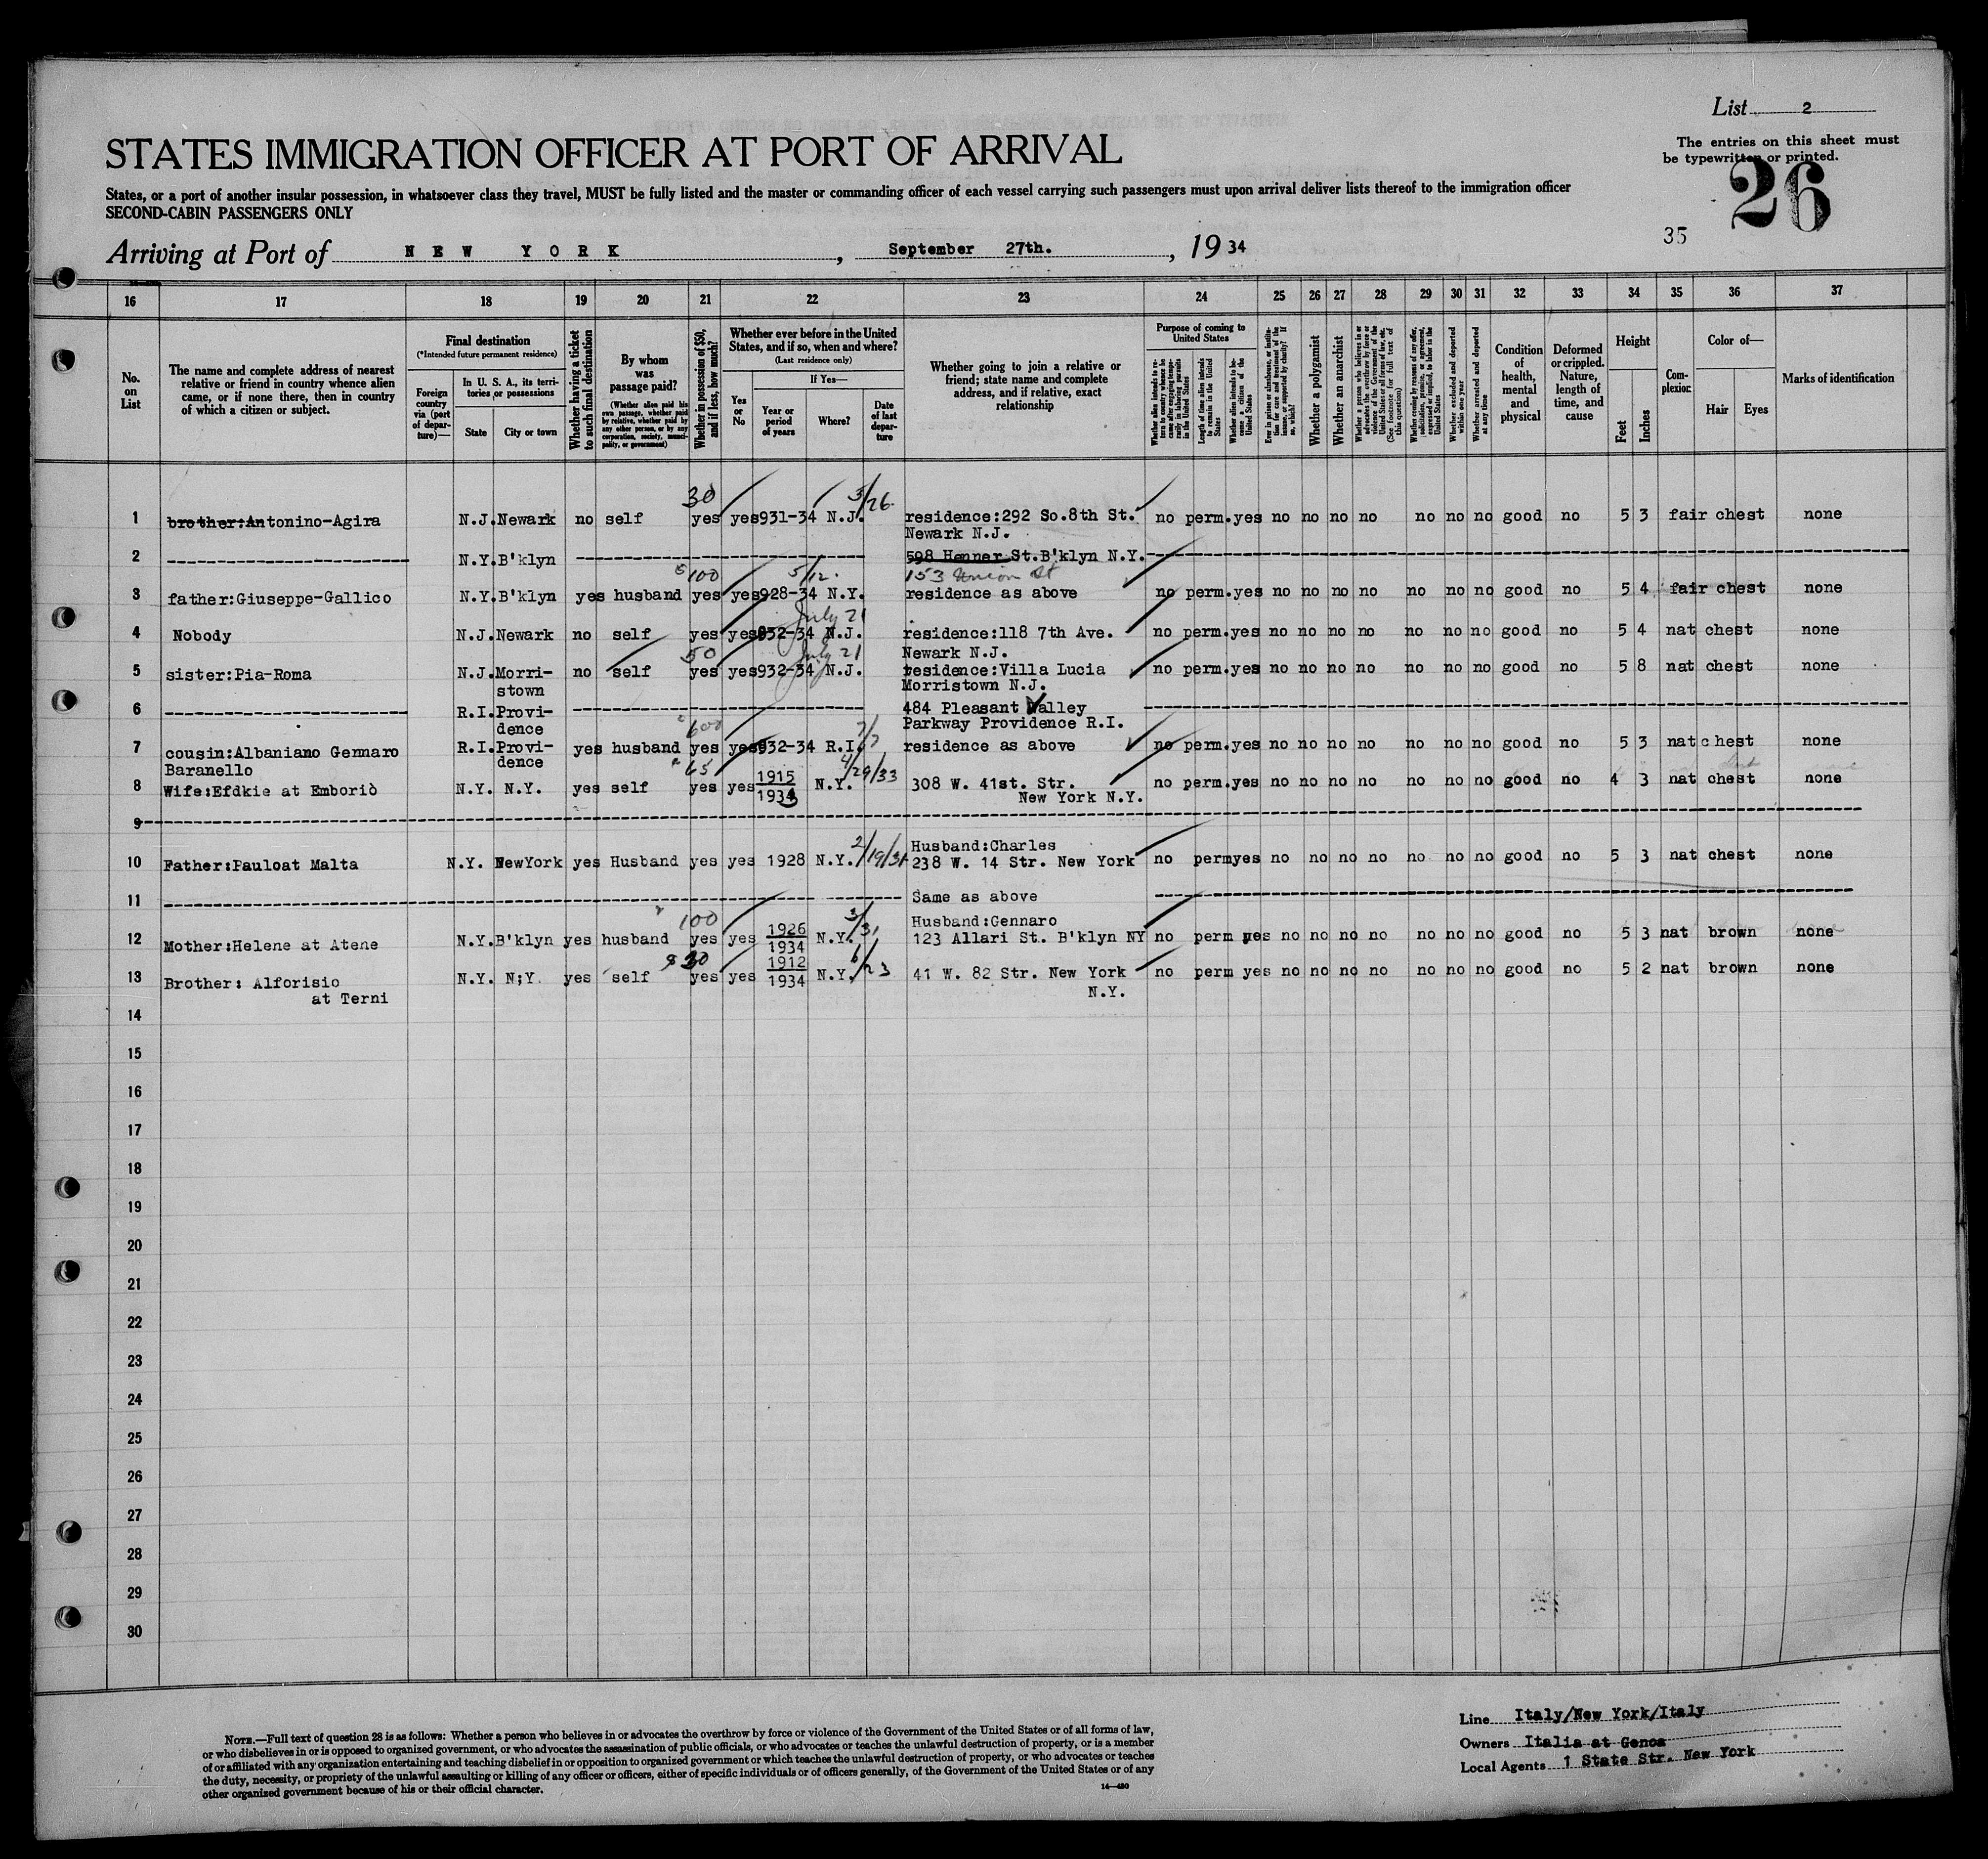 List 2
The entries on this sheet must
be typewritten or printed.
26
35
STATES IMMIGRATION OFFICER AT PORT OF ARRIVAL
States, or a port of another insular possession, in whatsoever class they travel, MUST be fully listed and the master or commanding officer of each vessel carrying such passengers must upon arrival deliver lists thereof to the immigration officer
SECOND-CABIN PASSENGERS ONLY
Arriving at Port of NEW YORK, September 27th., 1934
16 17 18 19 20 21 22 23 24 25 26 27 28 29 30 31 32 33 34 35 36 37
No.
on
List
The name and complete address of nearest
relative or friend in country whence alien
came, or if none there, then in country
of which a citizen or subject.
Final destination
(*Intended future permanent residence)
Foreign
country
via (port
of depar-
ture)—
In U. S. A., its terri-
tories or possessions
State
City or town
Whether having a ticket
to such final destination
By whom
was
passage paid?
(Whether alien paid his
own passage, whether paid
by relative, whether paid by
any other person, or by any
corporation, society, munici-
pality, or government)
Whether in possession of $50,
and if less, how much?
Whether ever before in the United
States, and if so, when and where?
(Last residence only)
Yes
or
No
If Yes—
Year or
period
of years
Where?
Date
of last
depar-
ture
Whether going to join a relative or
friend; state name and complete
address, and if relative, exact
relationship
Purpose of coming to
United States
Whether alien intends to re-
turn to country whence he
came after engaging tempo-
rarily in laboring pursuits
in the United States
Length of time alien intends
to remain in the United
States
Whether alien intends to be-
come a citizen of the
United States
Ever in prison or almshouse, or institu-
tion for care and treatment of the
insane, or supported by charity? If
so, which?
Whether a polygamist
Whether an anarchist
Whether a person who believes in or
advocates the overthrow by force or
violence of the Government of the
United States or all forms of law, etc.
(See footnote for full text of
this question)
Whether coming by reason of any offer,
solicitation, promise, or agreement,
expressed or implied, to labor in the
United States
Whether excluded and deported
within one year
Whether arrested and deported
at any time
Condition
of
health,
mental
and
physical
Deformed
or crippled.
Nature,
length of
time, and
cause
Height
Feet
Inches
Com-
plexion
Color of—
Hair
Eyes
Marks of identification
30 5/26
1 brother:Antonino-Agira N.J. Newark no self yes yes 931-34 N.J. residence:292 So.8th St. no perm. yes no no no no no no no good no 5 3 fair chest none
Newark N.J.
2 N.Y. B'klyn 598 Henner St.B'klyn N.Y.
100 5/12. 153 Union St
3 father:Giuseppe-Gallico N.Y. B'klyn yes husband yes yes 928-34 N.Y. residence as above no perm. yes no no no no no no no good no 5 4 fair chest none
July 21
4 Nobody N.J. Newark no self yes yes 932-34 N.J. residence:118 7th Ave. no perm. yes no no no no no no no good no 5 4 nat chest none
50 July 21 Newark N.J.
5 sister:Pia-Roma N.J. Morri- no self yes yes 932-34 N.J. residence:Villa Lucia no perm. yes no no no no no no no good no 5 8 nat chest none
stown Morristown N.J.
6 R.I. Provi- 484 Pleasant Valley
dence Parkway Providence R.I.
600 7/7
7 cousin:Albaniano Gennaro R.I. Provi- yes husband yes yes 932-34 R.I. residence as above no perm. yes no no no no no no no good no 5 3 nat chest none
Baranello dence
65 4/29/33
8 Wife:Efdkie at Emboriò N.Y. N.Y. yes self yes yes 1915 1934 N.Y. 308 W. 41st. Str. no perm. yes no no no no no no no good no 4 3 nat chest none
New York N.Y.
9
Husband:Charles
10 Father:Pauloat Malta N.Y. NewYork yes Husband yes yes 1928 N.Y. 2/19/31 238 W. 14 Str. New York no perm yes no no no no no no no good no 5 3 nat chest none
11 Same as above
100 3/31 Husband:Gennaro
12 Mother:Helene at Atene N.Y. B'klyn yes husband yes yes 1926 1934 N.Y. 123 Allari St. B'klyn NY no perm yes no no no no no no no good no 5 3 nat brown none
$30 6/23
13 Brother: Alforisio N.Y. N;Y. yes self yes yes 1912 1934 N.Y. 41 W. 82 Str. New York no perm yes no no no no no no no good no 5 2 nat brown none
at Terni N.Y.
14
15
16
17
18
19
20
21
22
23
24
25
26
27
28
29
30
NOTE.—Full text of question 28 is as follows: Whether a person who believes in or advocates the overthrow by force or violence of the Government of the United States or of all forms of law,
or who disbelieves in or is opposed to organized government, or who advocates the assassination of public officials, or who advocates or teaches the unlawful destruction of property, or is a member
of or affiliated with any organization entertaining and teaching disbelief in or opposition to organized government or which teaches the unlawful destruction of property, or who advocates or teaches
the duty, necessity, or propriety of the unlawful assaulting or killing of any officer or officers, either of specific individuals or of officers generally, of the Government of the United States or of any
other organized government because of his or their official character.
14—480
Line Italy/New York/Italy
Owners Italia at Genoa
Local Agents 1 State Str. New York